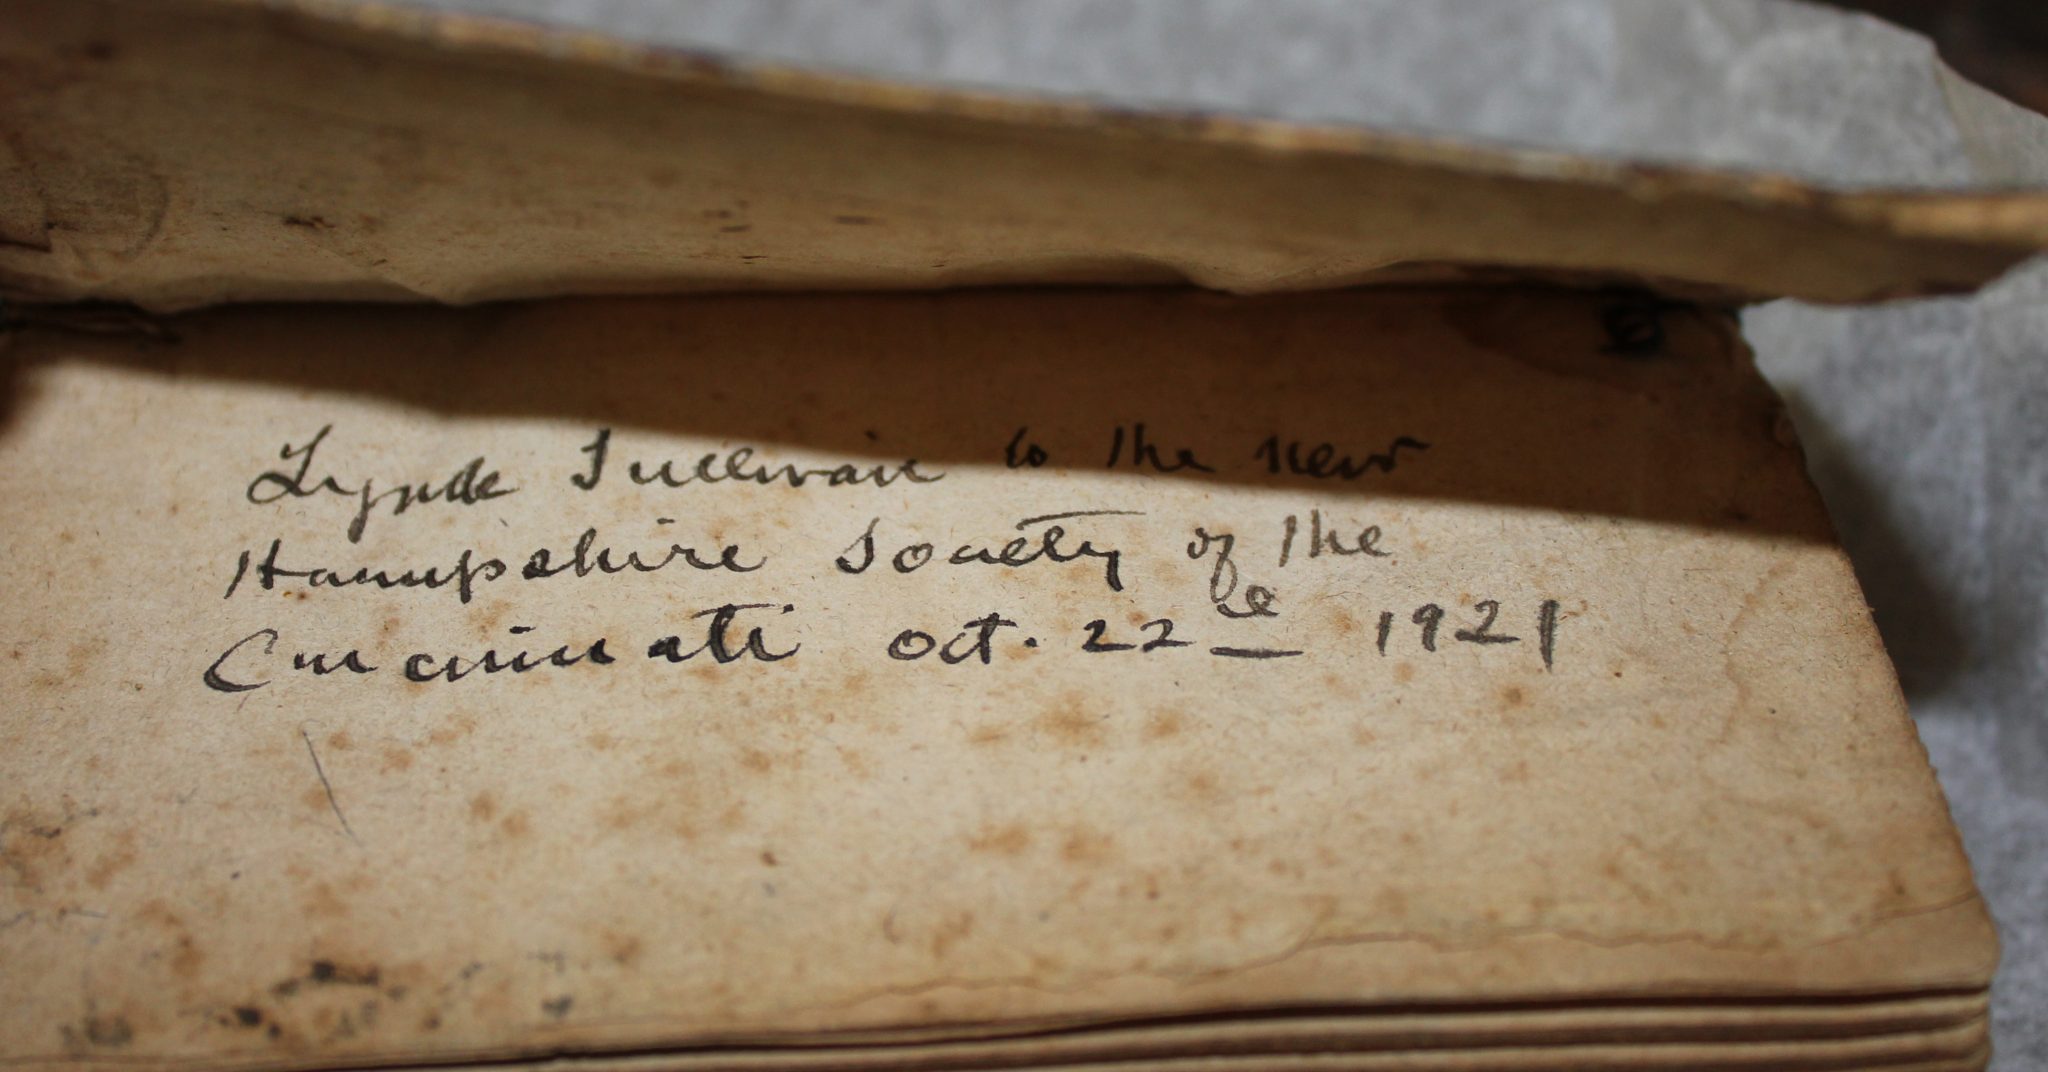 Lynde Sullivan to the New
Hampshire Society of the
Cincinnati Oct. 22e 1921